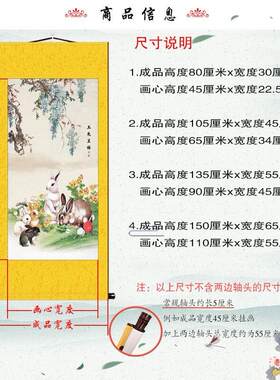 商品信息
尺寸说明
1.成品高度80厘米x宽度30厘
画心高度45厘米x宽度22.5
2.成品高度105厘米x宽度45
画心高度65厘米x宽度34厘
3.成品高度135厘米x宽度55
画心高度90厘米x宽度45厘
4.成品高度150厘米x宽度65
画心高度110厘米x宽度55
注：以上尺寸不含两边轴头的尺
常规轴头约长5厘米
例如成品宽度45厘米挂画
加上两边轴头总宽度约为55厘米
画心宽度
成品宽度